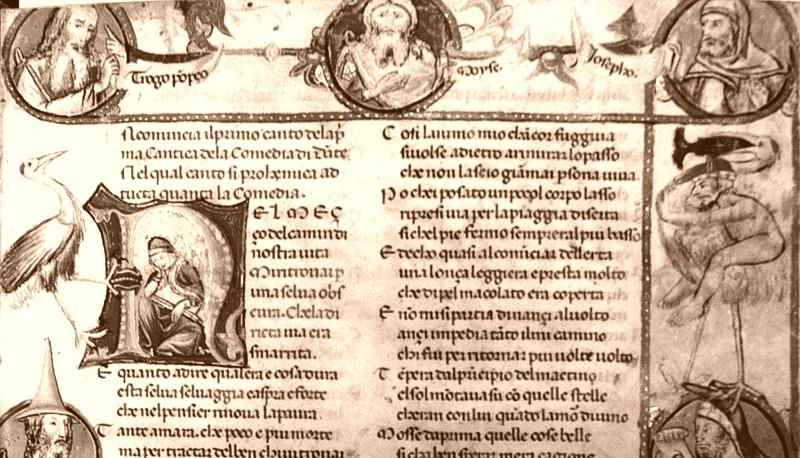 Trogo pōpeo
Moyse.
Josepho.
Ncomincia il primo canto dela p̄
ma Cantica dela Comedia di dāte
Nel quel canto si prohemica ad
tucta quanta la Comedia.
NEL MEÇ
ço del camin di
nostra vita
Mi ritrouai p
una selua obs
cura. Chela di
ricta uia era
smarrita.
E quanto a dire qual era e cosa dura
esta selua seluaggia e aspra e forte
che nel pensier rinoua la paura.
T ante amara. che poco e piu morte
ma per tractar del ben chi ui trouai
C osi l animo mio che ancor fuggiua
si uolse a dietro a rimirar lo passo
che non lascio giamai p̄sona uiua.
P o chei posato un poco el corpo lasso
ripresi uia per la piaggia diserta
si chel pie fermo sempre era l piu basso
E d echo quasi al cominciar dellerta
una lonça leggiera e presta molto
che di pel macolato era coperta
E nō mi si partia dinançi al uolto
ançi impedia tāto il mi camino
chi fui per ritornar piu uolte uolto.
T ēpera dal prīcipio del matino
el sol mōtaua su cō quelle stelle
cheran con lui quādo lamō diuino
M osse da prima quelle cose belle
si cha ben sperar mera cagione